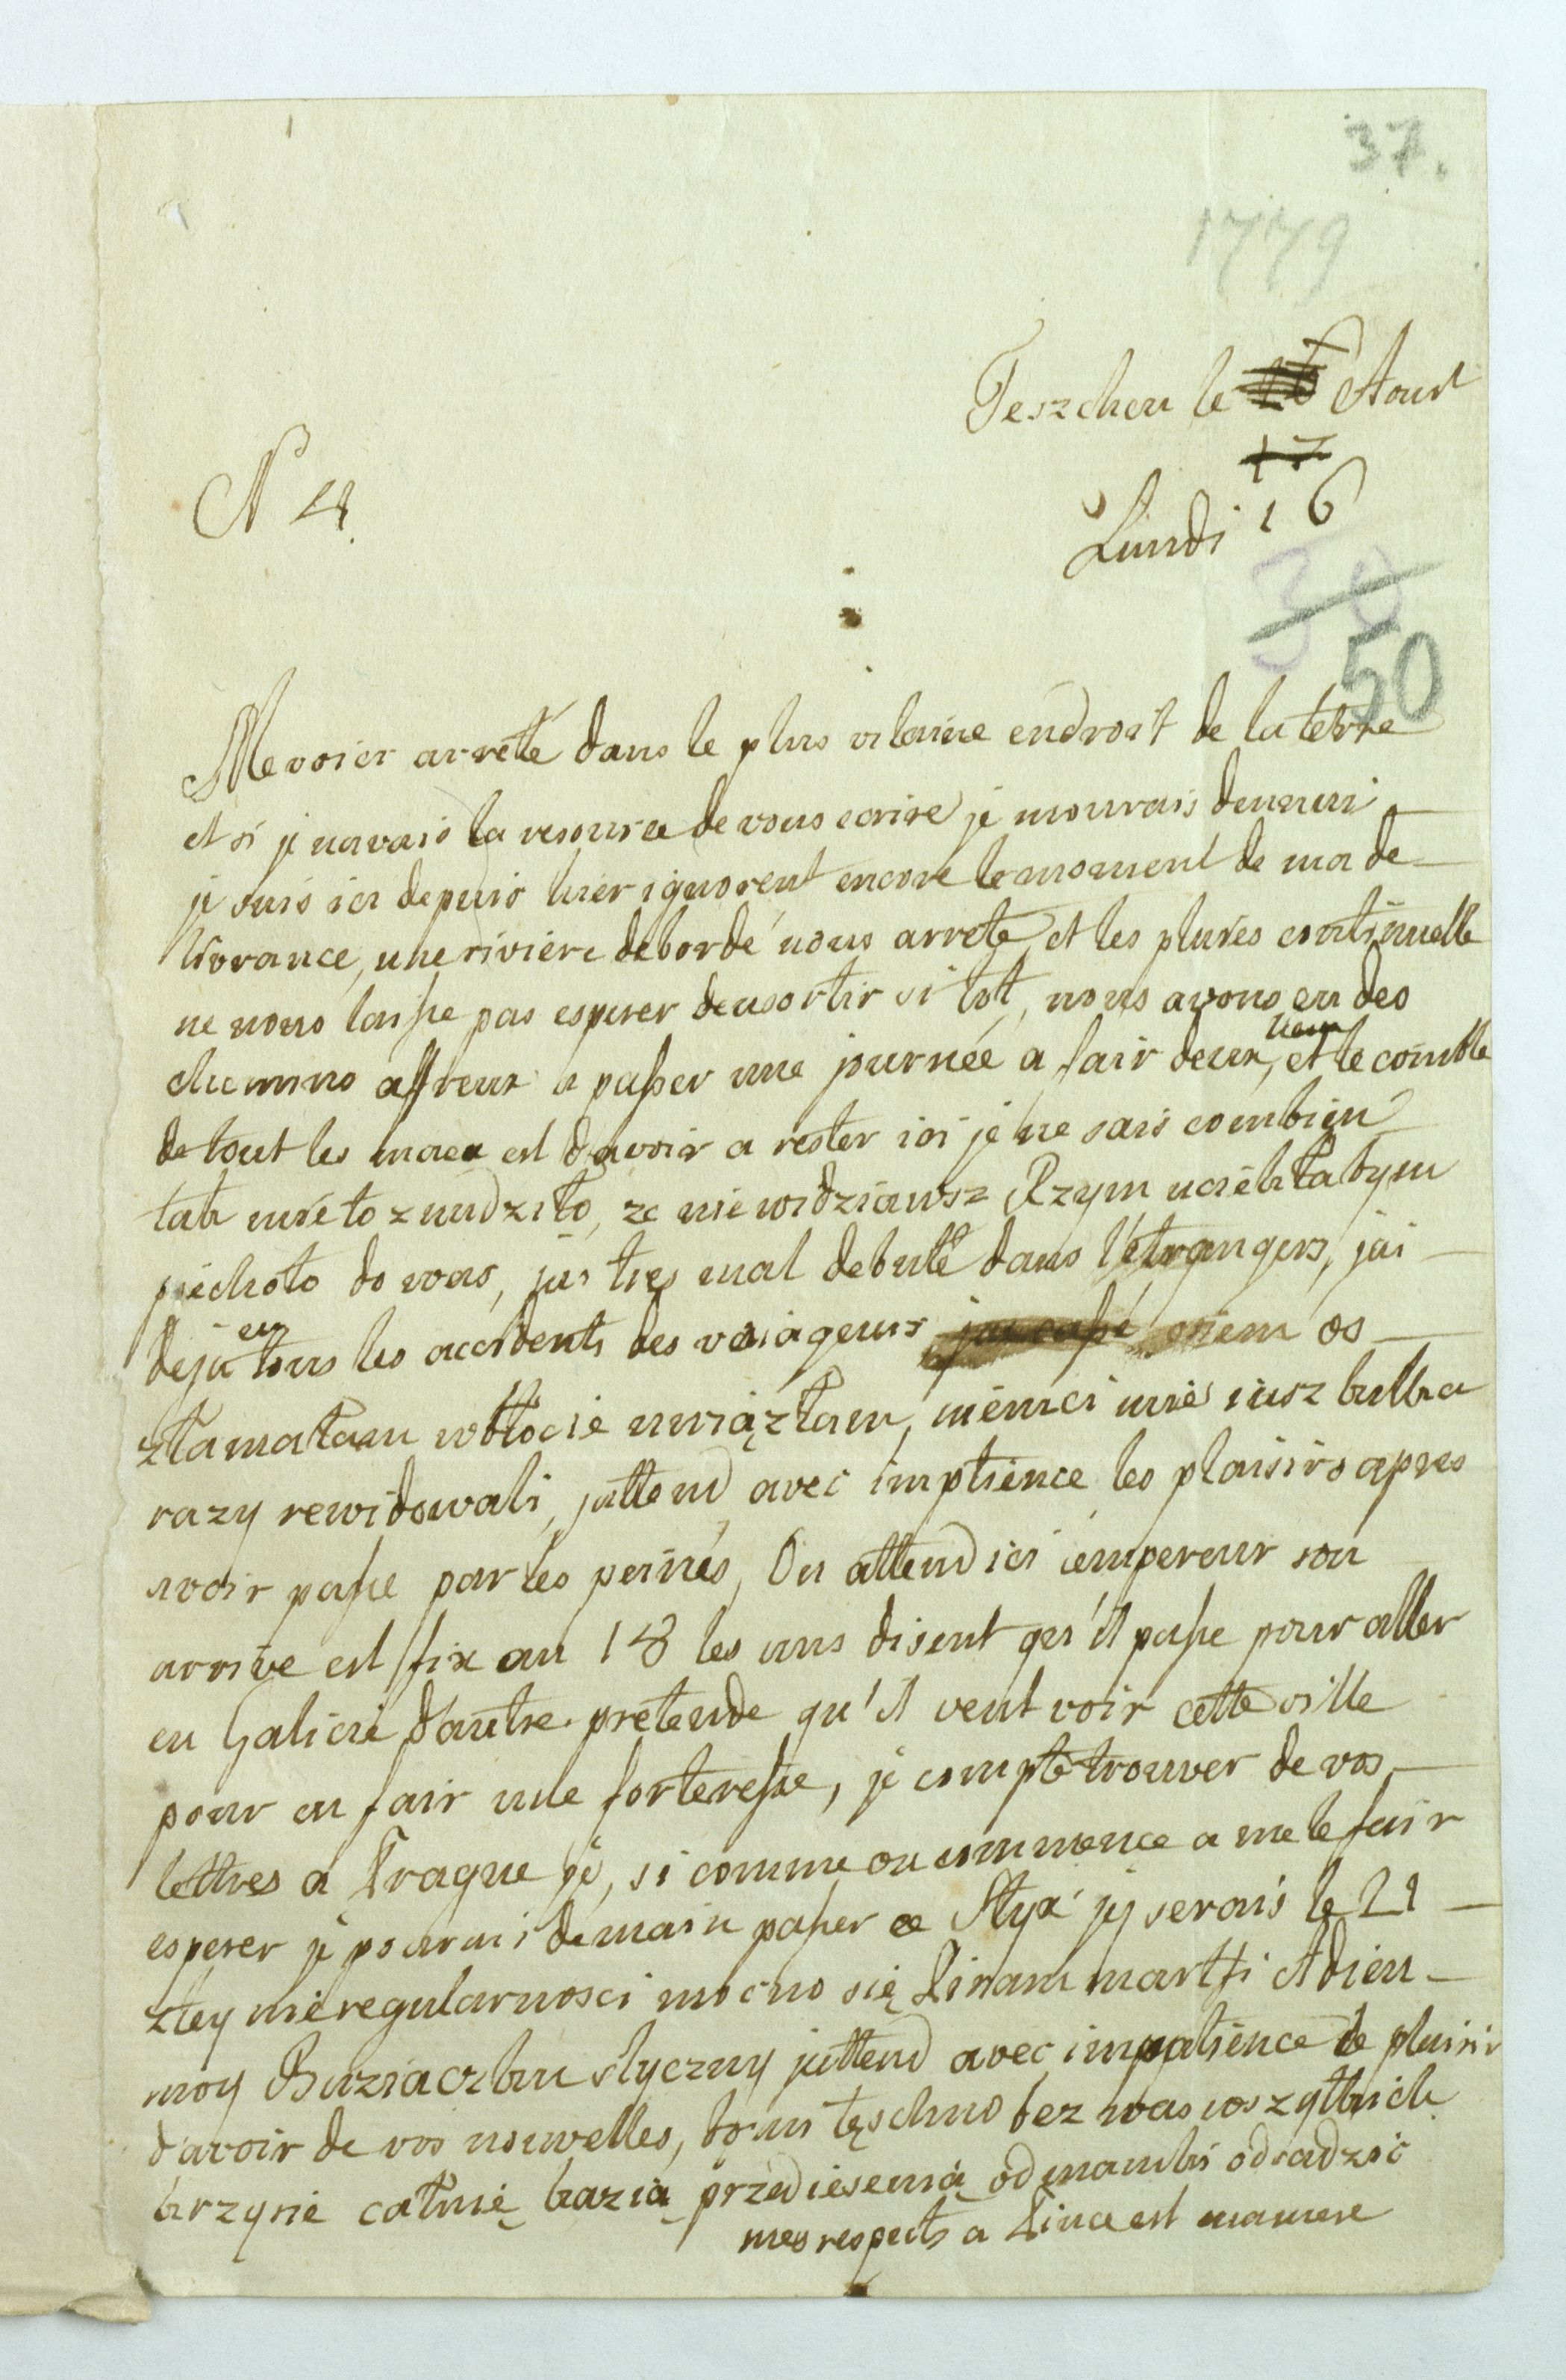 37.
1779
Teszchen le 16 Aout
17
N 4.
Lundi 16
30
50
Me voici arreté dans le plus vilaine endroit de la terre
et si je navais la resource de vous ecrire je mourais dennui
je suis ici depuis hier ignorent encore le moment de ma de
livrance, une riviere debordé nous arrete et les pluies continuelle
ne nous laisse pas esperer den sortir si tot, nous avons eu des
chemins affreux a passer une journée a fair deux lieux, et le comble
de tout les maux est davoir a rester ici je ne sais combien
tak mie to znudziło, ze nie widziawsz Rzym uciekłabym
piechoto do was, jai tres mal debuté dans l'etrangers, jai
deja eu tous les accidents des voiageurs osiem os
złamałam w błocie uwiązłam, niemci mie iusz kilka
razy rewidowali, jattend avec imptience les plaisirs apres
avoir passe par les peines, On attend ici empereur son
arrive est fix au 18 les uns disent qu'il passe pour aller
en Galicie d'autre pretende qu'il veut voir cette ville
pour en fair une forteresse, je compte trouver de vos
lettres a Prague je, si comme on commence a me le fair
esperer je pourai demain passer ce Styx jy serais le 21
z tey nieregularnosci mocno się Pinam martfi Adieu
moy Buziaczku slyczny jattend avec impatience le plaisir
d'avoir de vos nouvelles, bo mi tęschno bez was wszytkich
krzysie całuię każią przed iesenią od manki odsadzić
mes respects a Pince est mamere